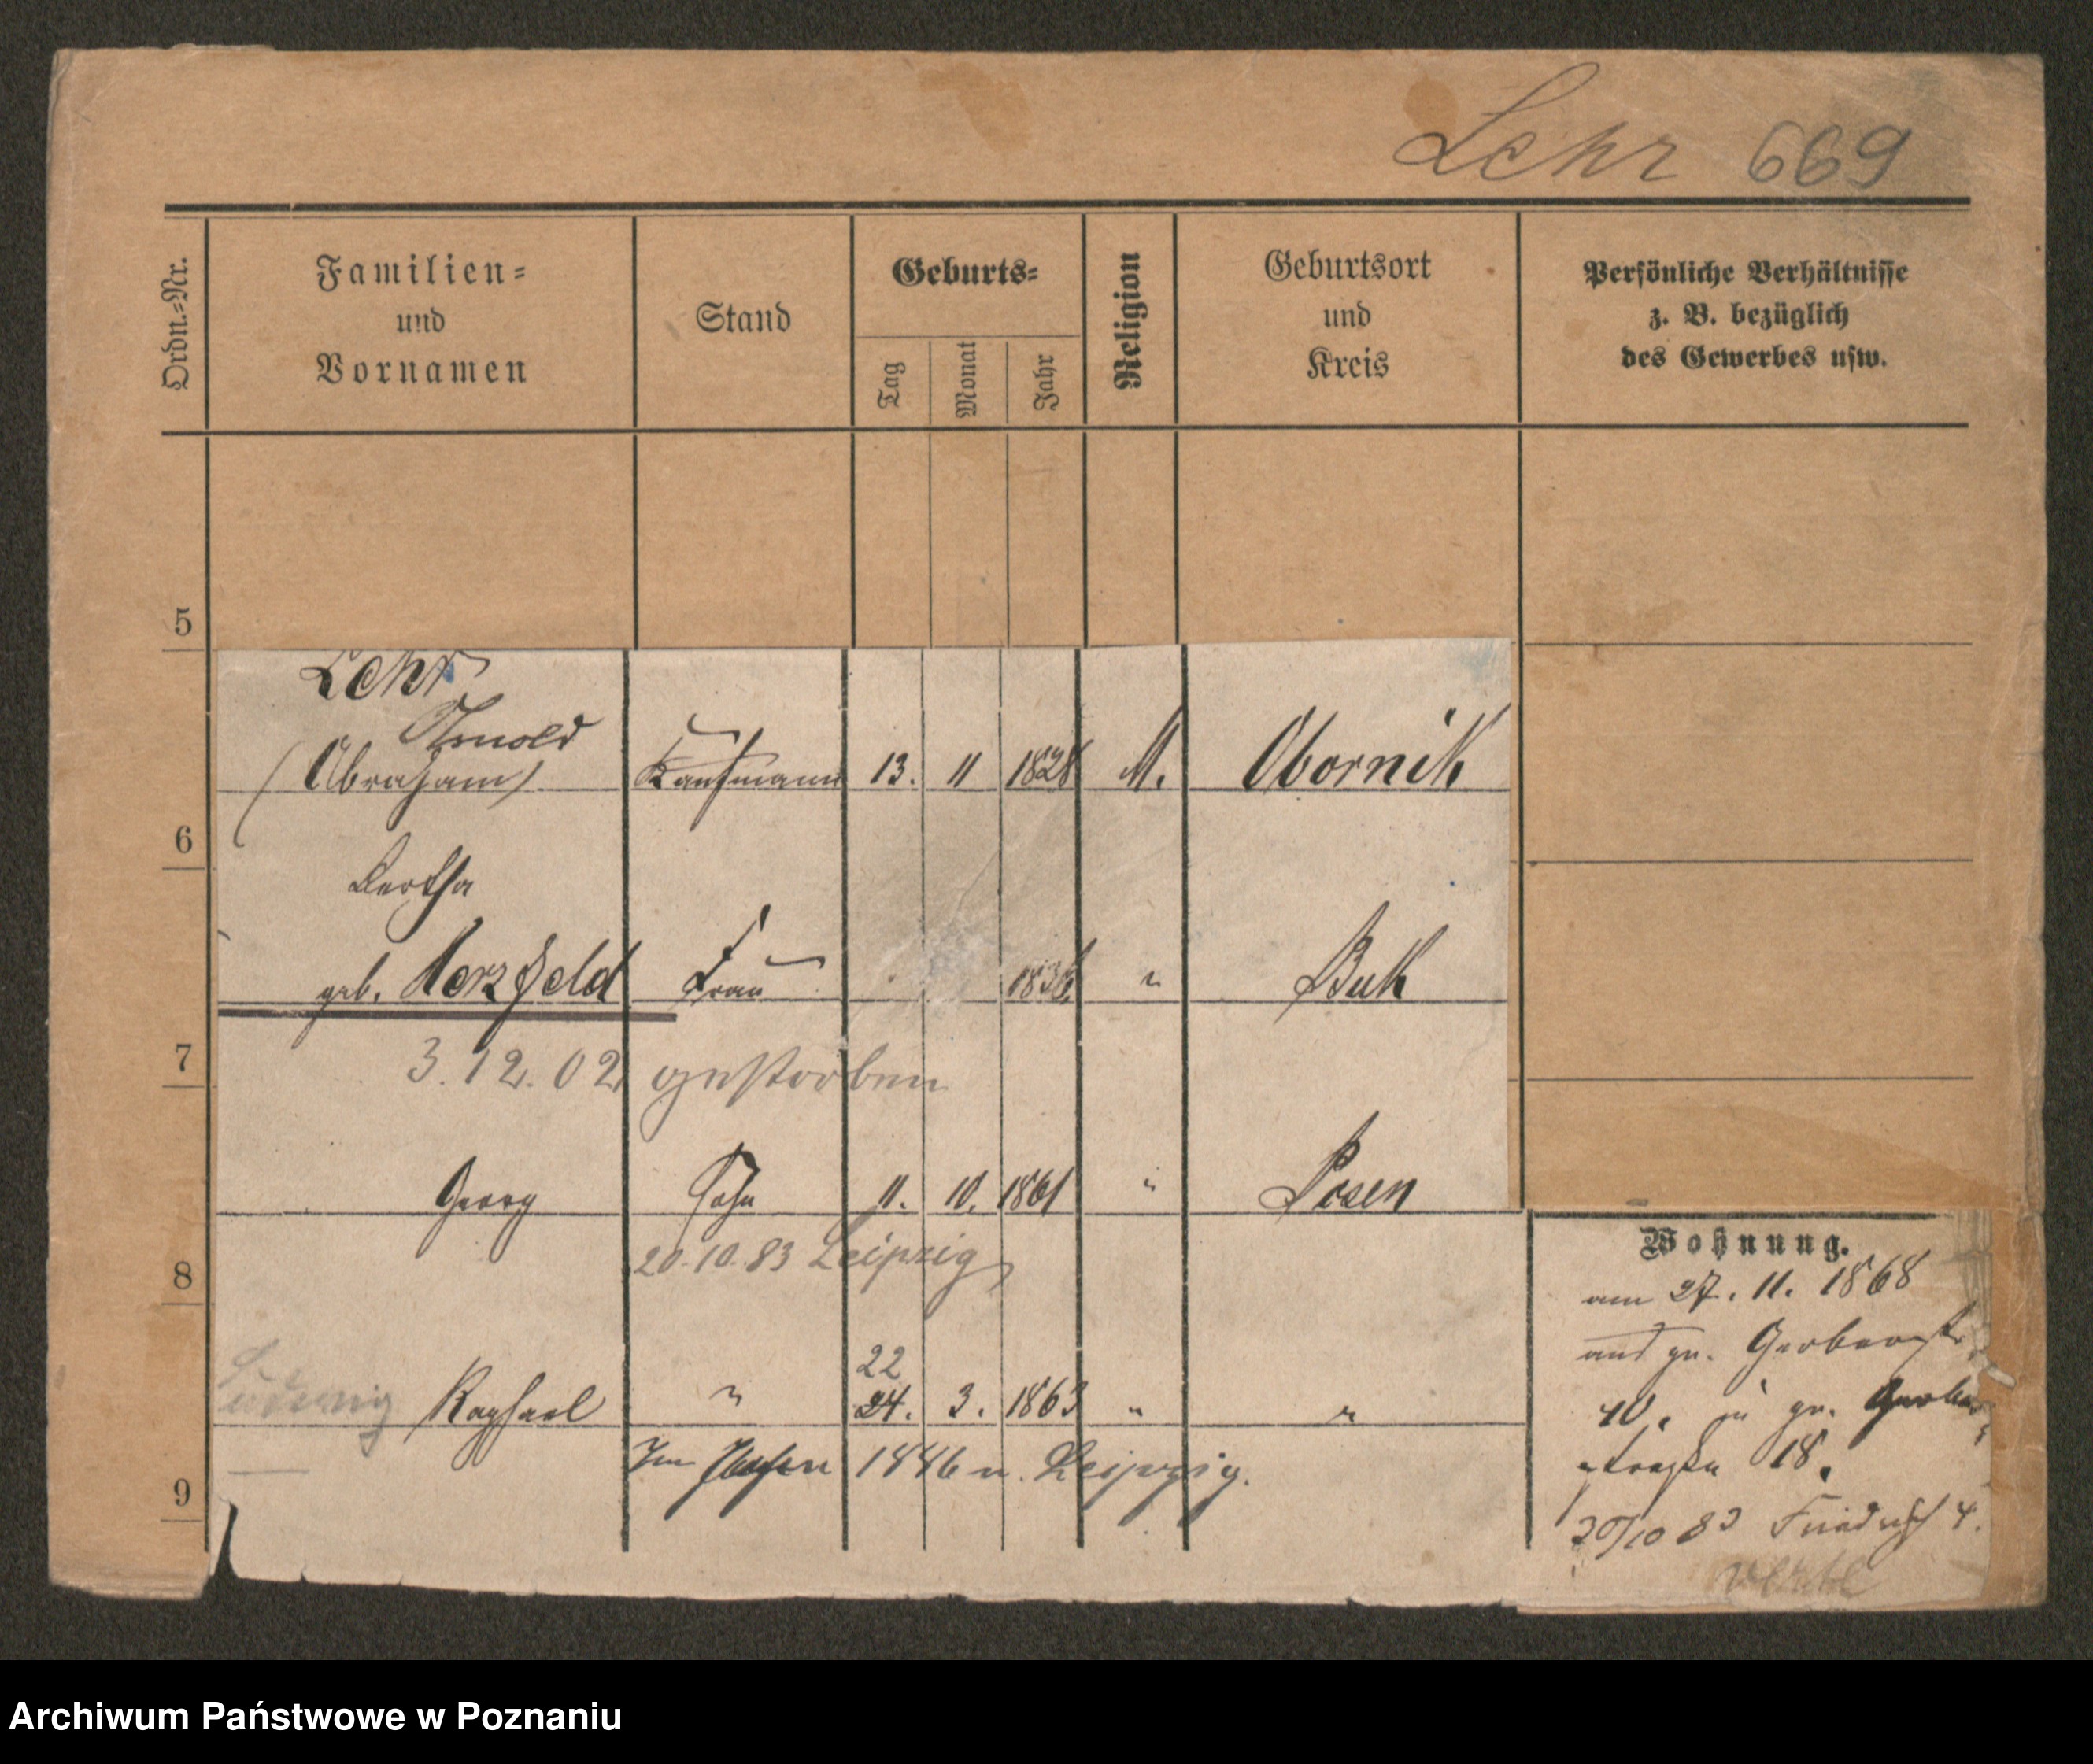 Lehr 669
Ordn.=Nr.
Familien=
und
Vornamen
Stand
Geburts=
Tag
Monat
Jahr
Religion
Geburtsort
und
Kreis
Persönliche Verhältnisse
z. B. bezüglich
des Gewerbes usw.
5
Lehr
Arnold
(Abraham) Kaufmann 13. 11 1828 M. Obornik
6
Bertha
geb. Herzfeld Frau 1836 " Buk
7
3.12.02 gestorben
Georg Sohn 11. 10. 1861 " Posen
20.10.83 Leipzig
8
22
Ludwig Raphael " 24. 3. 1863 " "
Leipzig.
9
Wohnung.
am 27. 11. 1868
aus gr. Gerberstr.
40. in gr. Gerber
straße 18.
30/10 83 Friedrich 4.